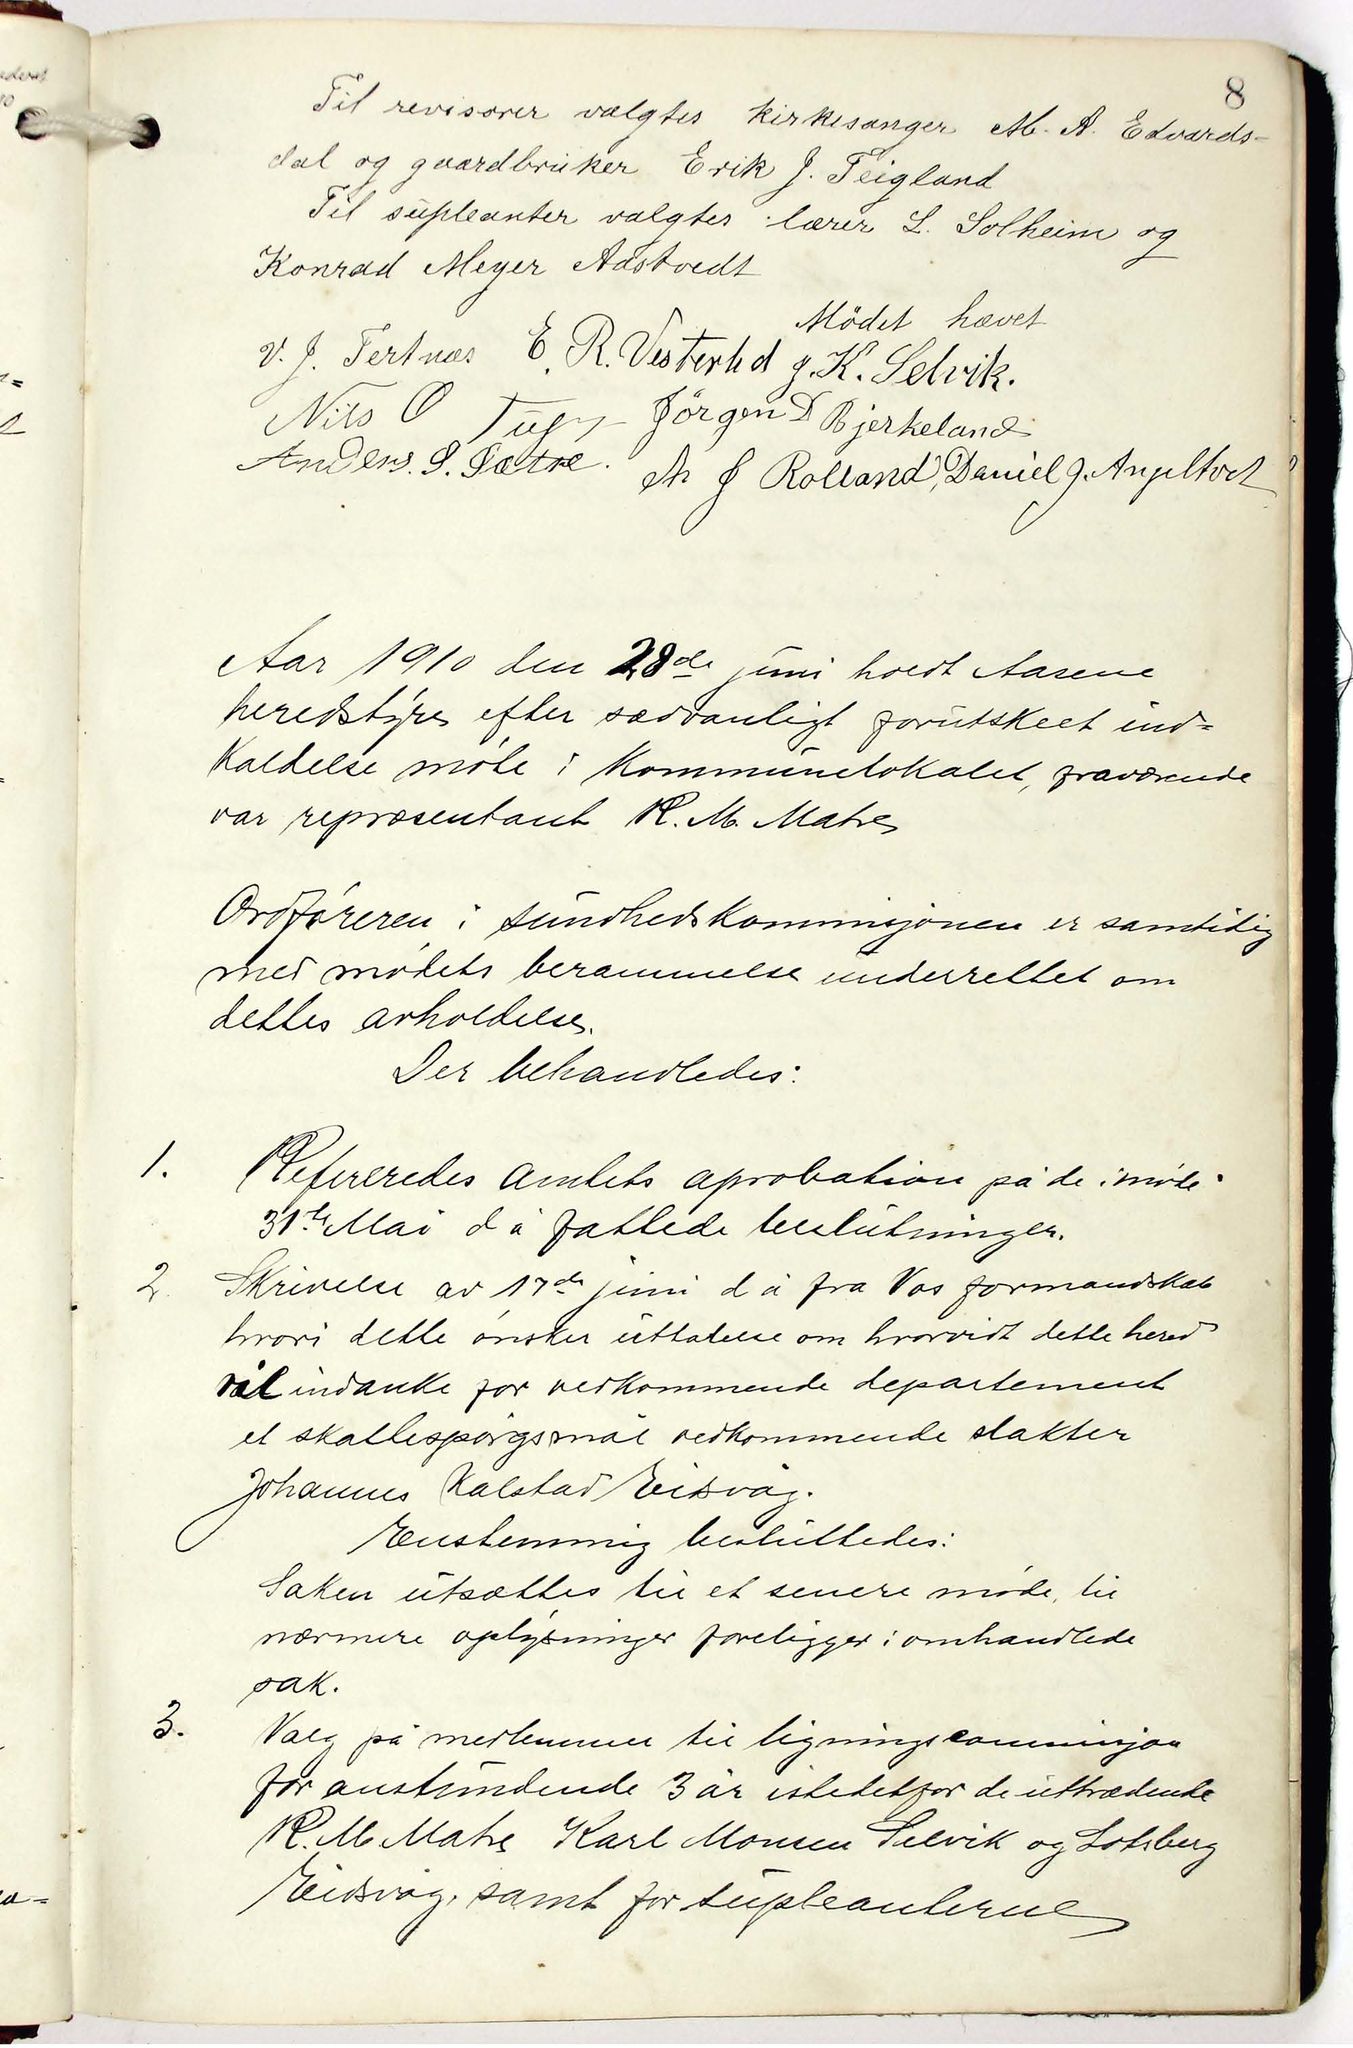 8
Til revisorer valgtes kirkesanger M. A. Edvards-
dal og gaardbruker Erik J. Teigland
Til supleanter valgtes lærer L. Solheim og
Konrad Meyer Aastvedt
Mödet hævet
V. J. Tertnæs E. R. Vesterlid J. K. Selvik.
Nils O Jörgen D Bjerkeland
Anders S. Sætre. A J Rolland, Daniel J. Angeltvet
Aar 1910 den 28de juni holdt Aasene
heredstyre efter sædvanligt forutskeet ind=
kaldelse møte i Kommunelokalet, fraværende
var repræsentant R. M. Matre
Ordføreren i sundhedskommisjonen er samtidig
med mødets berammelse underrettet om
dettes avholdelse.
Der behandledes:
1. Refereredes Amtets aprobation på de i møte
31te Mai d å fattede beslutninger.
2. Skrivelse av 17de juni d å fra Vos formandskab
hvori dette ønsker uttalelse om hvorvidt dette hered
vil indanke for vedkommende departement
et skattespørgsmål vedkommende slakter
Johannes Kalstad Eidsvåg.
Enstemmig besluttedes:
Saken utsættes til et senere møde, til
nærmere oplysninger foreligger i omhandlede
sak.
3. Valg på medlemmer til ligningscommisjon
for anstundende 3 år istedetfor de uttrædende
R. M. Matre Karl Monsen Selvik og Lotsberg
Eidsvåg, samt for supleanterne